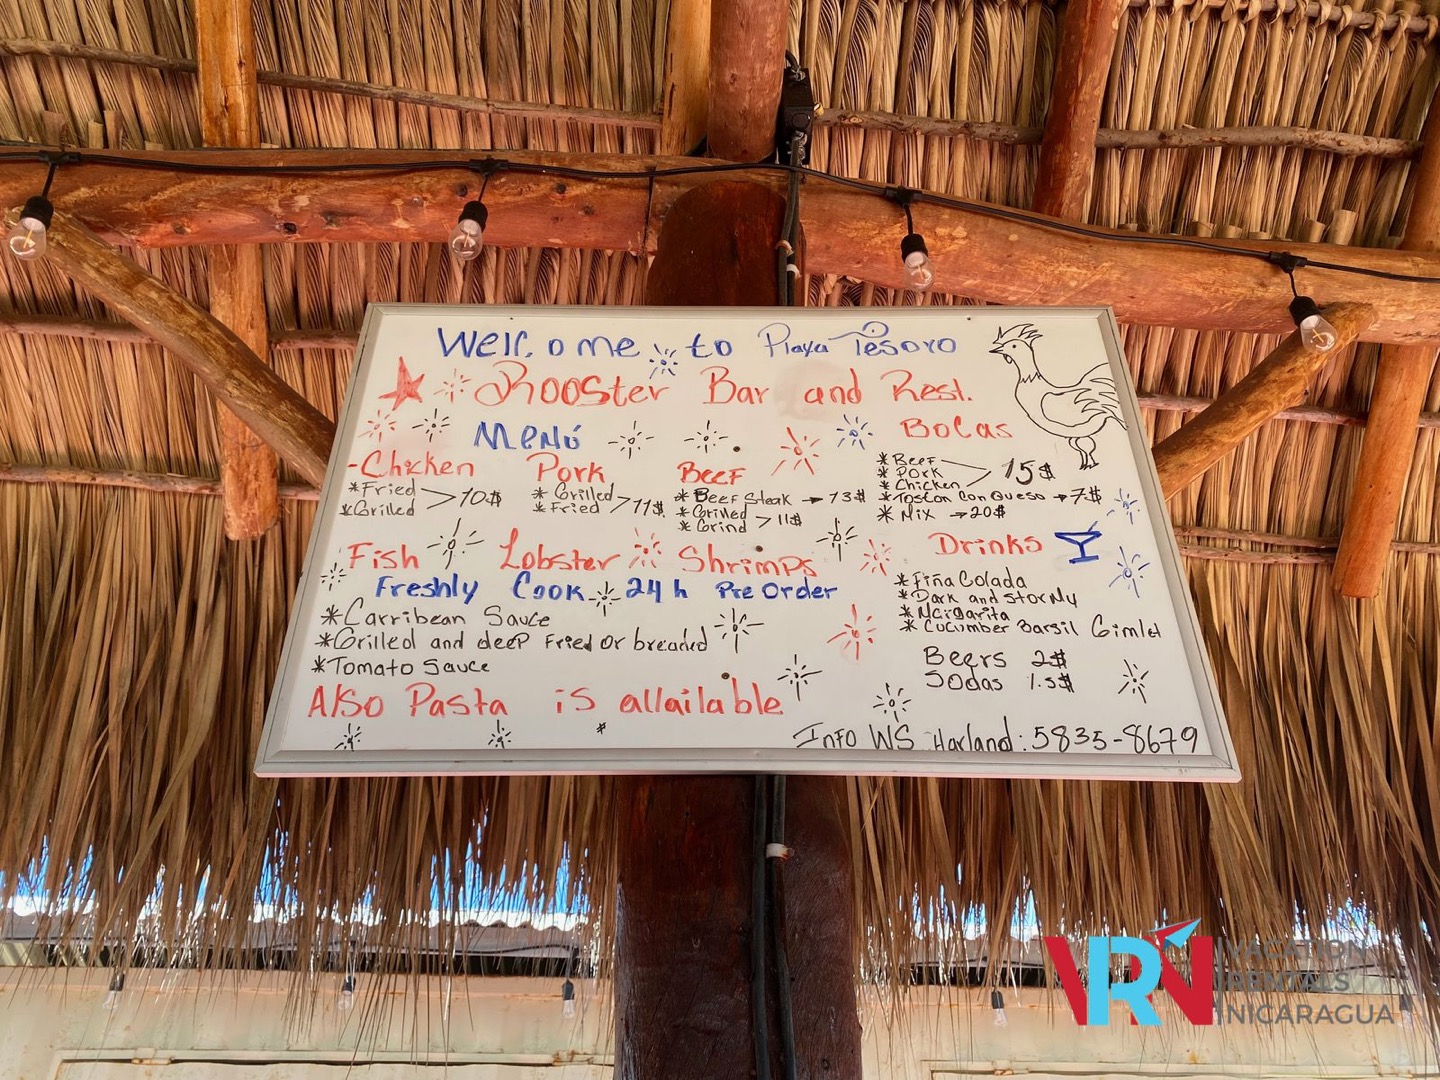 Welcome to Playa Tesoro
Rooster Bar and Rest.
Menú
-Chicken
*Fried
*Grilled > 10$
Pork
* Grilled
* Fried > 11$
Beef
* Beef Steak → 13$
* Grilled
* Grind > 11$
Bocas
* Beef
* Pork
* Chicken > 15$
* Toscon con Queso → 7$
* Mix → 20$
Fish Lobster Shrimps
Freshly Cook 24 h Pre Order
*Carribean Sauce
*Grilled and deep Fried or breaded
*Tomato Sauce
Also Pasta is allailable
$
Drinks
* Piña Colada
* Dark and Stormy
* Mcigarita
* Cucumber Barsil Gimlet
Beers 2$
Sodas 1.5$
Info WS Harland: 5835-8679
VRN
VACATION
RENTALS
NICARAGUA